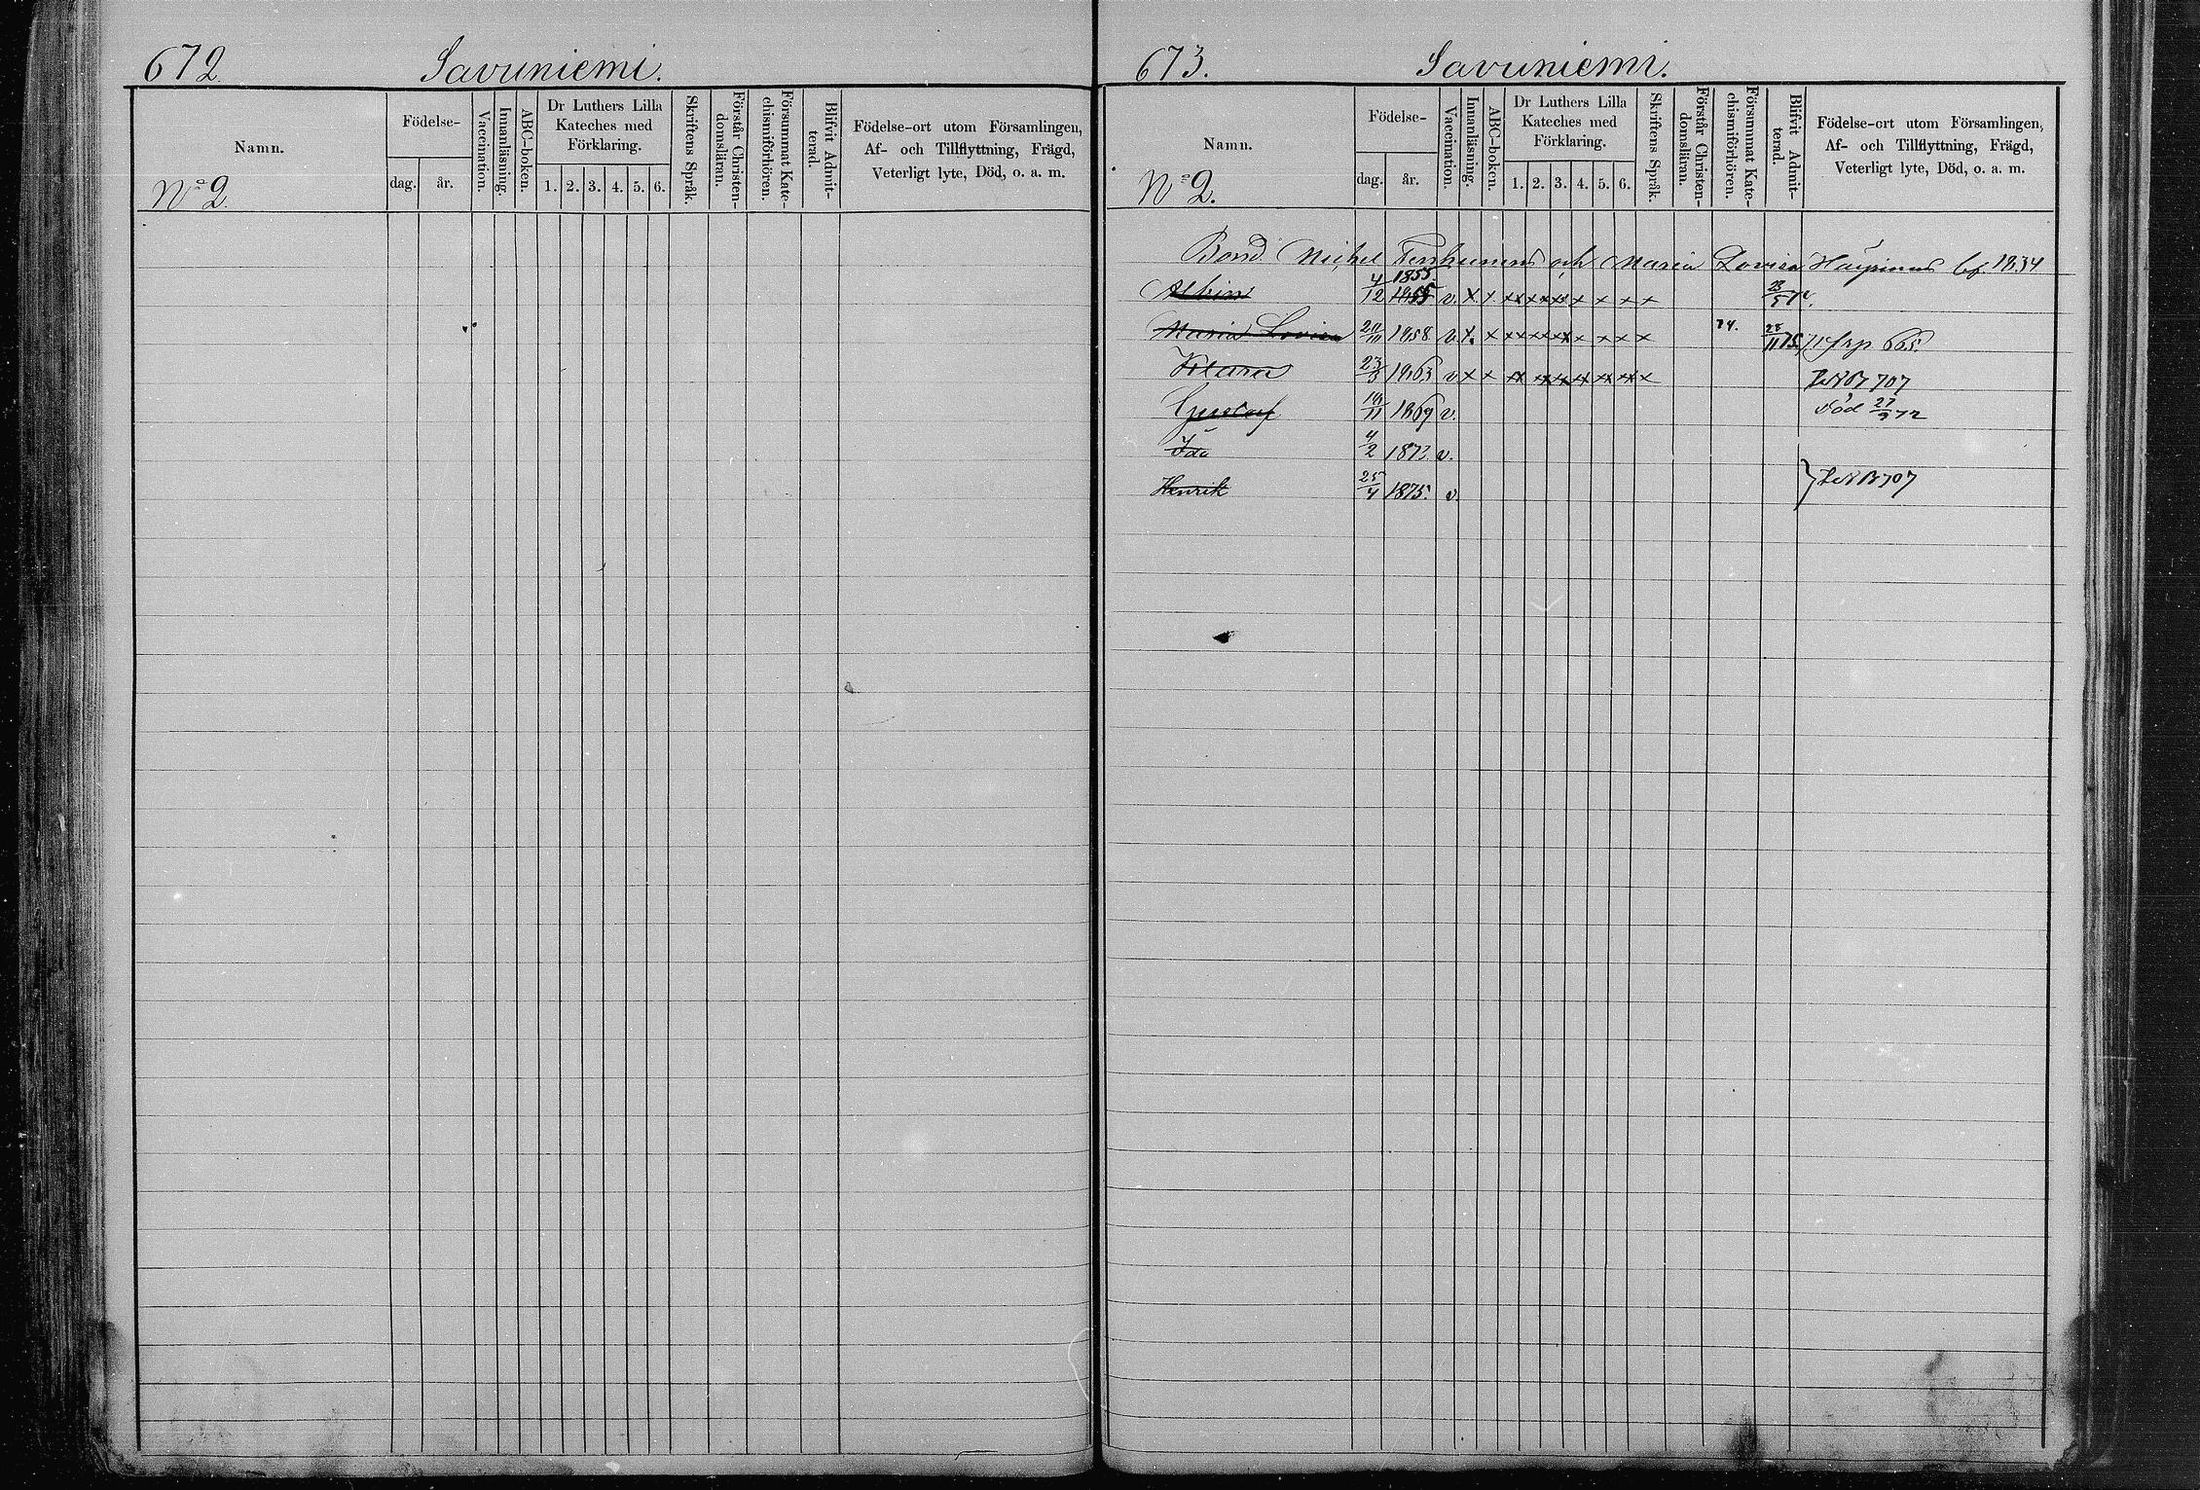 672.
Savuniemi.
Namn.
Födelse-
dag.
år.
Vaccination.
Innanläsning.
ABC-boken.
Dr Luthers Lilla
Kateches med
Förklaring.
1. 2. 3. 4. 5. 6.
Skriftens Språk.
Förstår Christen-
domsläran.
Försummat Kate-
chismiförhören.
Blifvit Admit-
terad.
Födelse-ort utom Församlingen,
Af- och Tillflyttning, Frägd,
Veterligt lyte, Död, o. a. m.
No 2.
673.
Savuniemi.
Namn.
Födelse-
dag.
år.
Vaccination.
Innanläsning.
ABC-boken.
Dr Luthers Lilla
Kateches med
Förklaring.
1. 2. 3. 4. 5. 6.
Skriftens Språk.
Förstår Christen-
domsläran.
Försummat Kate-
chismiförhören.
Blifvit Admit-
terad.
Födelse-ort utom Församlingen,
Af- och Tillflyttning, Frägd,
Veterligt lyte, Död, o. a. m.
No 2.
Bond. Michel och Maria Lovisa
1855
Albin 4/12 1855 v. x x xx xx xx x x x x
Maria Lovisa 1858 v. x. x xx xx xx x x x x 74. 665.
23/5 1863 v x x xx xx xx xx xx xx x 707
Gustaf 1869 v. död 27/9 72
Ida 4/2 1873. v.
Henrik 25/4 1875. v. 707